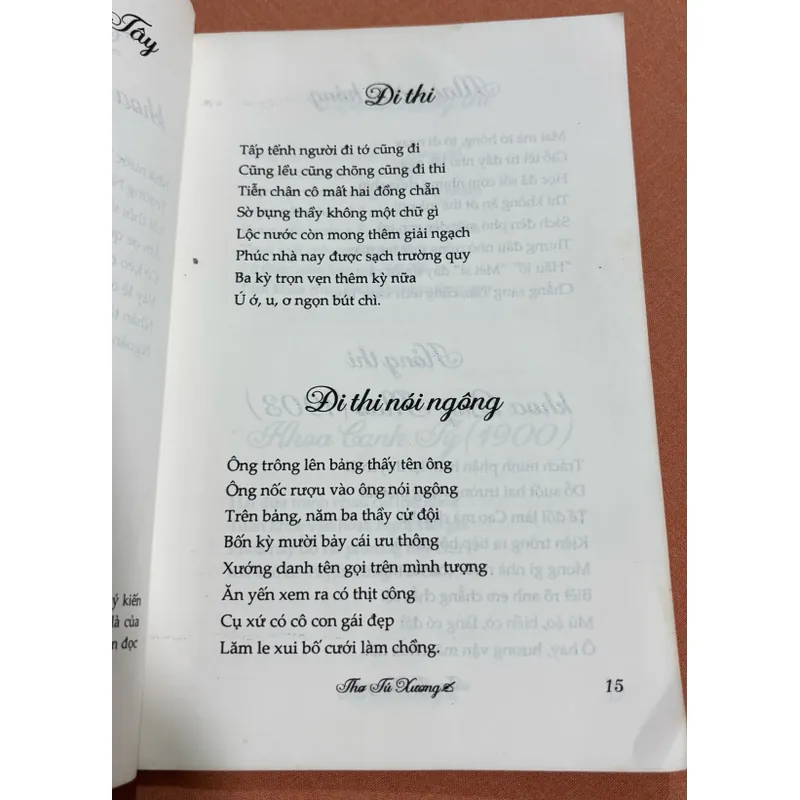 Tây
khoa
ý kiến
là của
n đọc
Đi thi
Tấp tểnh người đi tớ cũng đi
Cũng lều cũng chõng cũng đi thi
Tiễn chân cô mất hai đồng chẵn
Sờ bụng thầy không một chữ gì
Lộc nước còn mong thêm giải ngạch
Phúc nhà nay được sạch trường quy
Ba kỳ trọn vẹn thêm kỳ nữa
Ú ớ, u, ơ ngọn bút chì.
Đi thi nói ngông
Ông trông lên bảng thấy tên ông
Ông nốc rượu vào ông nói ngông
Trên bảng, năm ba thầy cử đội
Bốn kỳ mười bảy cái ưu thông
Xướng danh tên gọi trên mình tượng
Ăn yến xem ra có thịt công
Cụ xứ có cô con gái đẹp
Lăm le xui bố cưới làm chồng.
Thơ Tú Xương
15